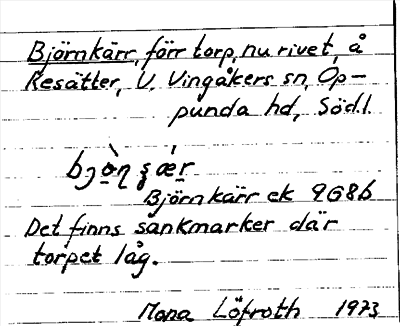 Björnkärr, förr torp, nu rivet, å
Kesätter, V. Vingåkers sn, Op-
punda hd, Södl.
Björnkärr ek 9G8b
Det finns sankmarker där
torpet låg.
Mona Löfroth 1973